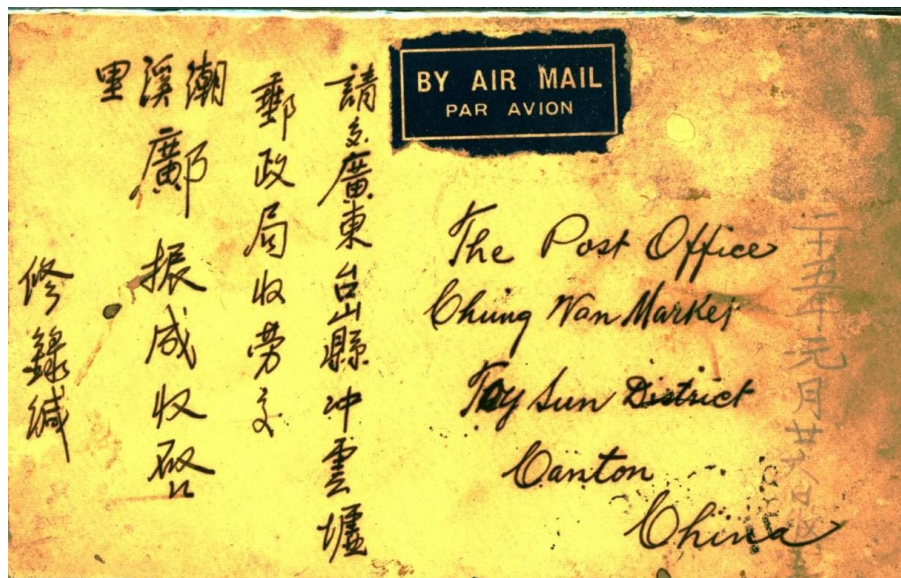 BY AIR MAIL
PAR AVION
The Post Office
Chung Wan Market
Toy Sun District
Canton
China
請交廣東台山縣冲雲墟
郵政局收勞交
潮溪里
鄺振成收啓
修錄緘
二十五年元月廿六日